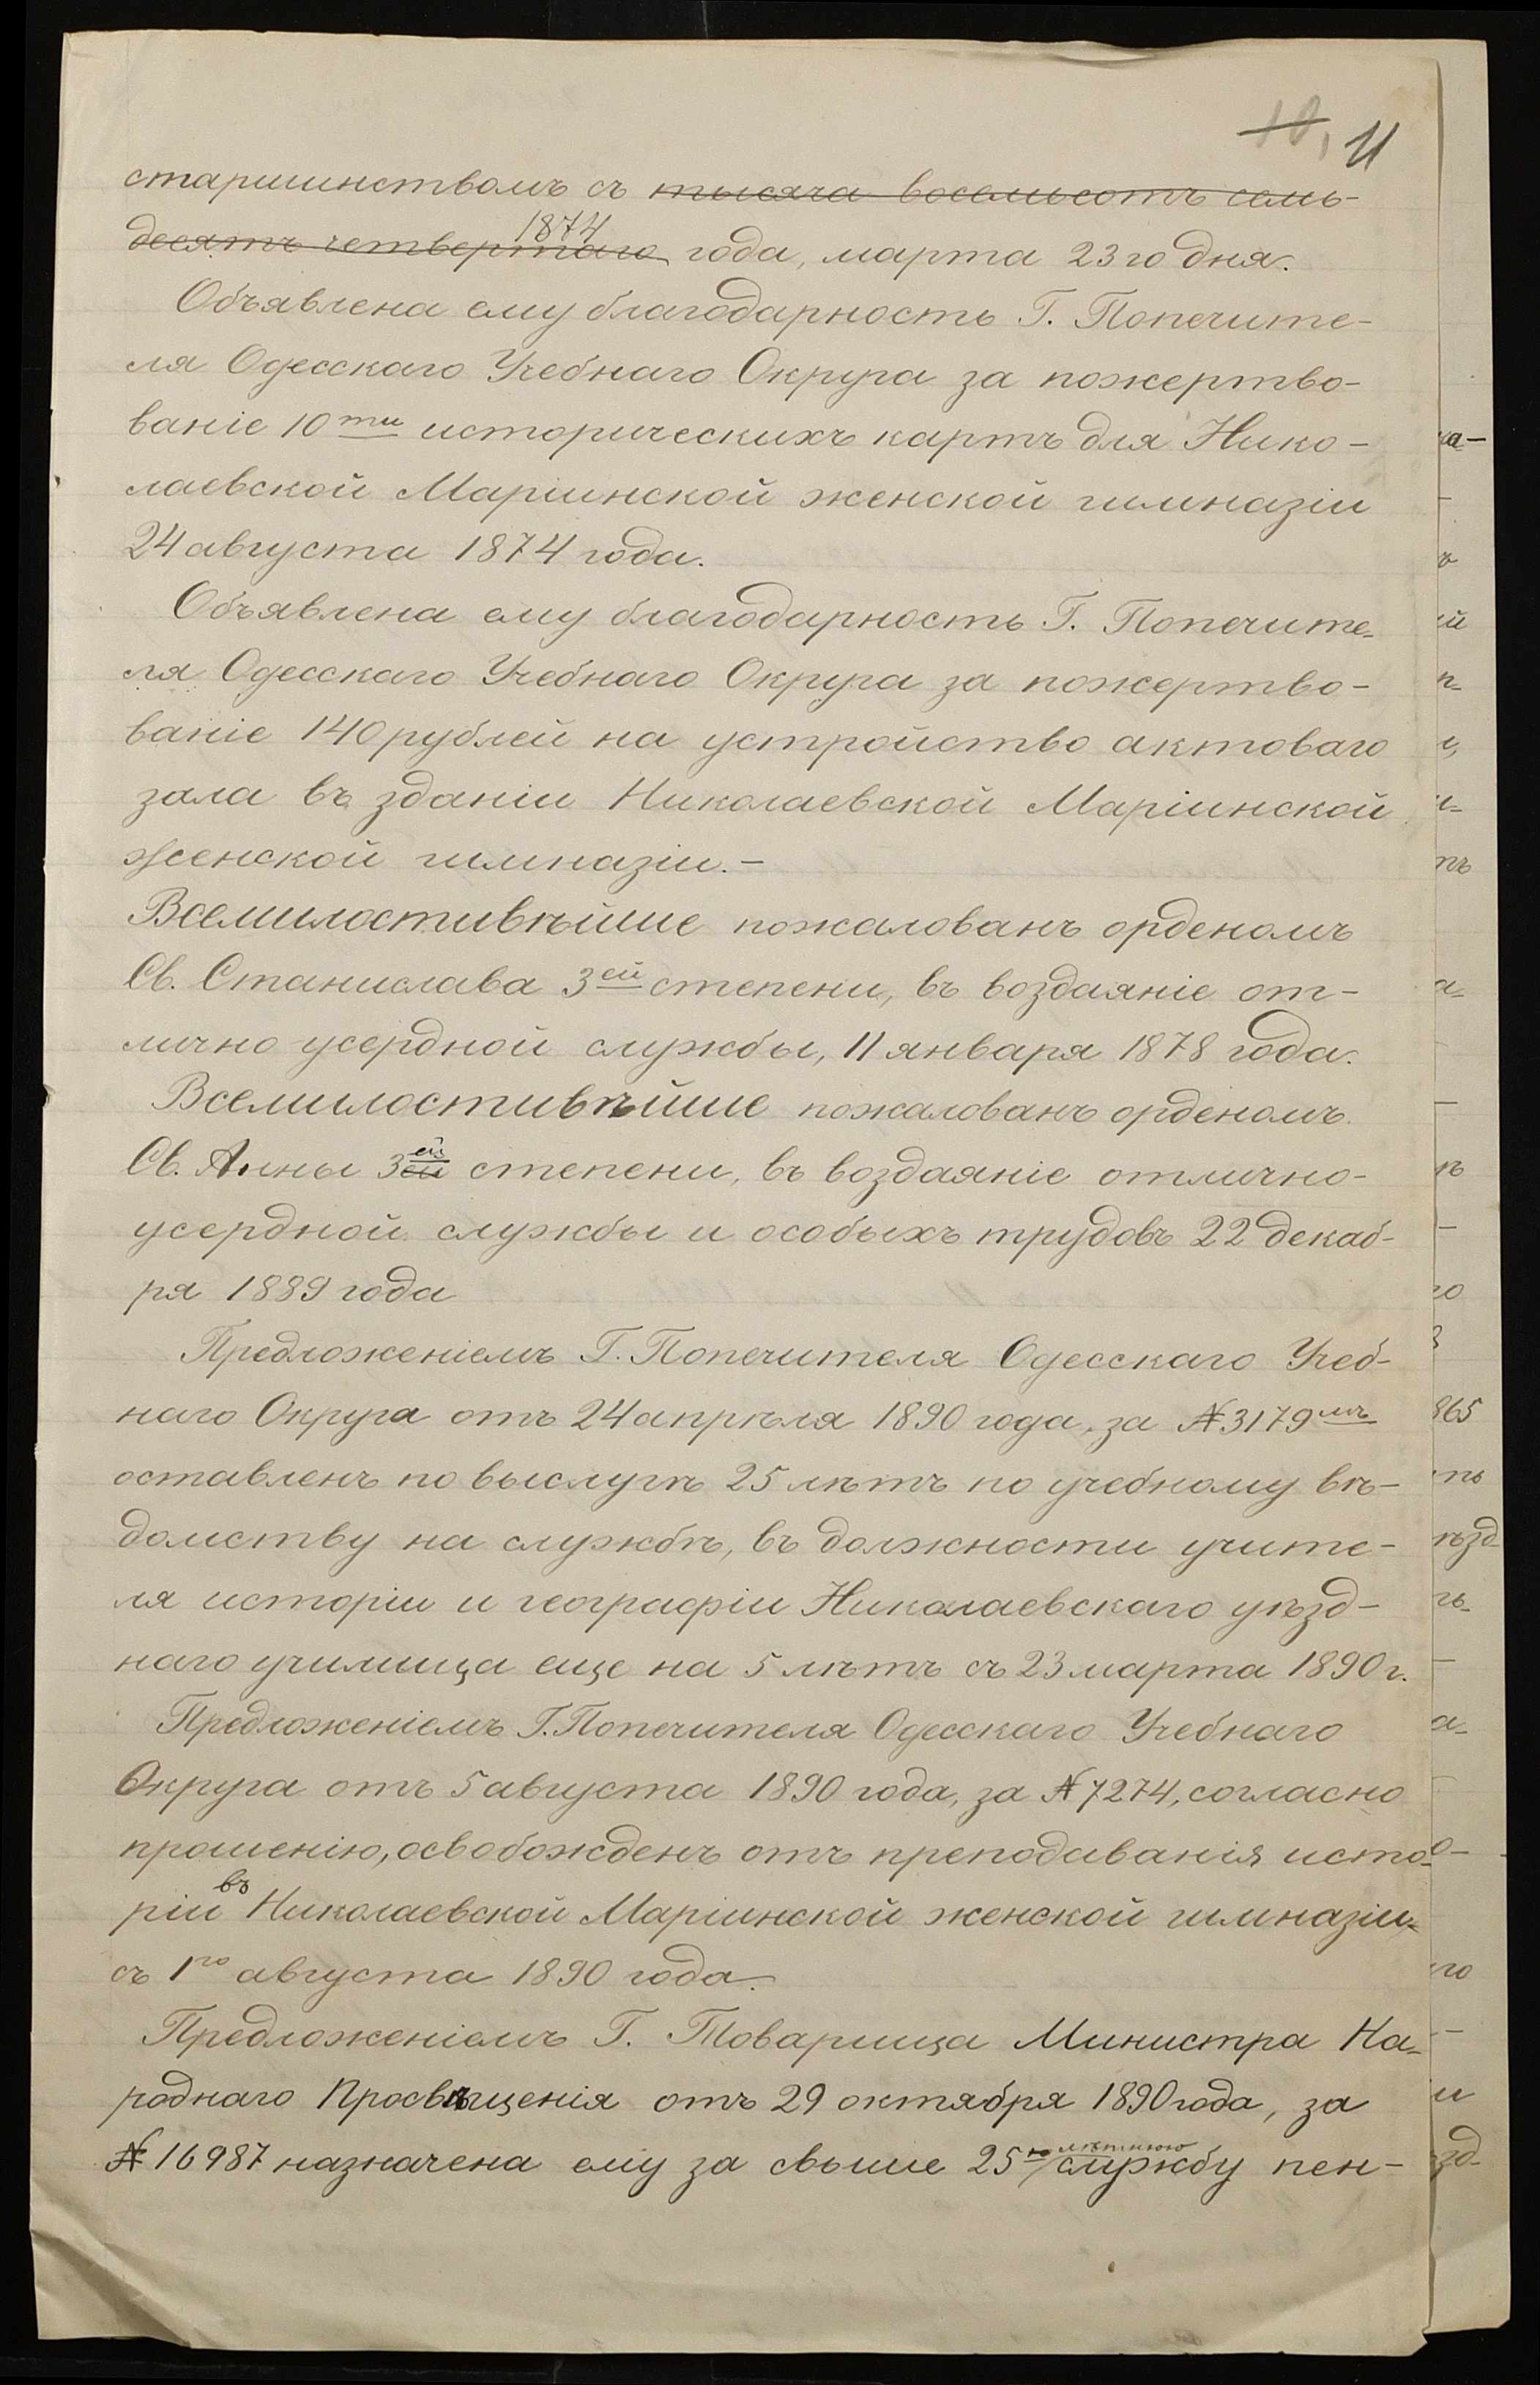 10, 11
старшинствомъ съ тысяча восемьсотъ семь-
десятъ четвертаго 1874 года, марта 23го дня.
Объявлена ему благодарность Г. Попечите-
ля Одесскаго Учебнаго Округа за пожертво-
ваніе 10ти историческихъ картъ для Нико-
лаевской Маріинской женской гимназіи
24 августа 1874 года.
Объявлена ему благодарность Г. Попечите-
ля Одесскаго Учебнаго Округа за пожертво-
ваніе 140 рублей на устройство актоваго
зала въ зданіи Николаевской Маріинской
женской гимназіи.-
Всемилостивѣйше пожалованъ орденомъ
Св. Станислава 3ей степени, въ воздаяніе от-
лично усердной службы, 11 января 1878 года.
Всемилостивѣйше пожалованъ орденомъ
Св. Анны 3ей степени, въ воздаяніе отлично-
усердной службы и особыхъ трудовъ 22 декаб-
ря 1889 года
Предложеніемъ Г. Попечителя Одесскаго Учеб-
наго Округа отъ 24 апрѣля 1890 года, за № 3179мъ
оставленъ по выслугѣ 25 лѣтъ по учебному вѣ-
домству на службѣ, въ должности учите-
ля исторіи и географіи Николаевскаго уѣзд-
наго училища еще на 5 лѣтъ съ 23 марта 1890 г.
Предложеніемъ Г. Попечителя Одесскаго Учебнаго
Округа отъ 5 августа 1890 года, за № 7274, согласно
прошенію, освобожденъ отъ преподаванія исто-
ріи въ Николаевской Маріинской женской гимназіи,
съ 1го августа 1890 года.
Предложеніемъ Г. Товарища Министра На-
роднаго Просвѣщенія отъ 29 октября 1890 года, за
№ 16987 назначена ему за свыше 25ю лѣтнюю службу пен-